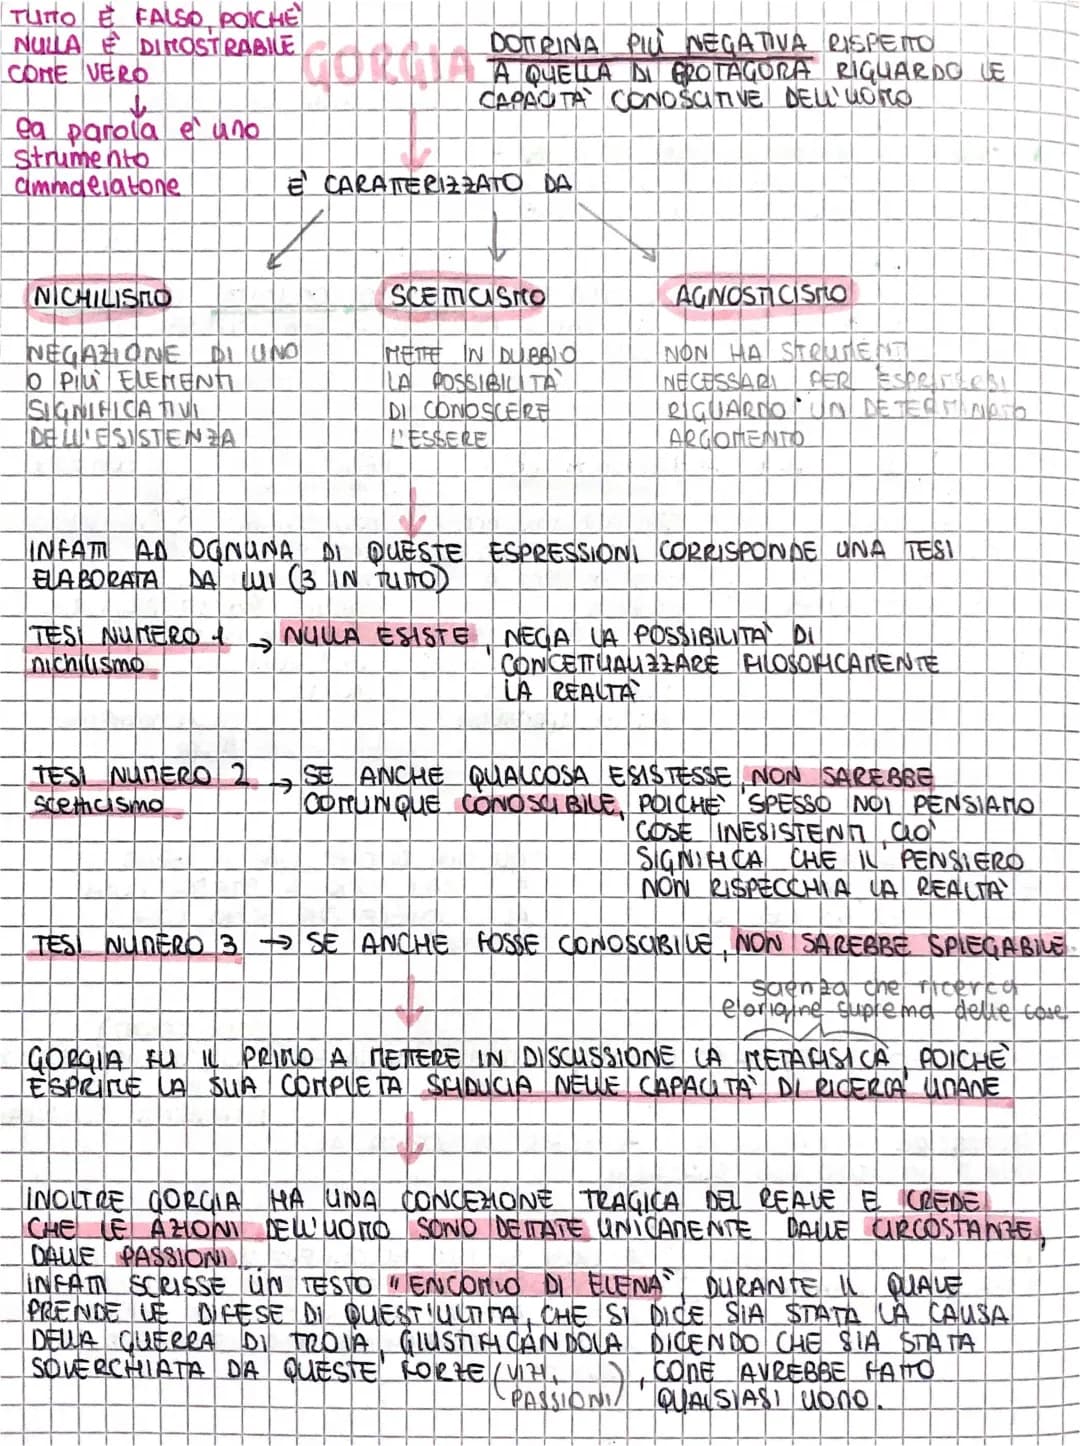 TUTTO È FALSO POICHÈ
NULLA È DIMOSTRABILE
COME VERO
la parola e' uno
strumento
ammaliatore
GORGIA
DOTRINA PIÙ NEGATIVA RISPETTO
A QUELLA DI PROTAGORA RIGUARDO LE
CAPACITA' CONOSCITIVE DELL'UOMO
E' CARATTERIZZATO DA
NICHILISMO
NEGAZIONE DI UNO
O PIÙ ELEMENTI
SIGNIFICATIVI
DELL'ESISTENZA
SCETTICISMO
METTE IN DUBBIO
LA POSSIBILITA'
DI CONOSCERE
L'ESSERE
AGNOSTICISMO
NON HA STRUMENTI
NECESSARI PER ESPRIMERSI
RIGUARDO UN DETERMINATO
ARGOMENTO
INFATTI AD OGNUNA DI QUESTE ESPRESSIONI CORRISPONDE UNA TESI
ELABORATA DA LUI (3 IN TUTTO)
TESI NUMERO 1 → NULLA ESISTE, NEGA LA POSSIBILITA' DI
nichilismo CONCETTUALIZZARE FILOSOFICAMENTE
LA REALTA'
TESI NUMERO 2 → SE ANCHE QUALCOSA ESISTESSE, NON SAREBBE
scetticismo COMUNQUE CONOSCIBILE, POICHE' SPESSO NOI PENSIAMO
COSE INESISTENTI, CIO'
SIGNIFICA CHE IL PENSIERO
NON RISPECCHIA LA REALTA'
TESI NUMERO 3 → SE ANCHE FOSSE CONOSCIBILE, NON SAREBBE SPIEGABILE.
scienza che ricerca
l'origine suprema delle cose
GORGIA FU IL PRIMO A METTERE IN DISCUSSIONE LA METAFISICA, POICHE'
ESPRIME LA SUA COMPLETA SFIDUCIA NELLE CAPACITA' DI RICERCA UMANE
INOLTRE GORGIA HA UNA CONCEZIONE TRAGICA DEL REALE E CREDE
CHE LE AZIONI DELL'UOMO SONO DETTATE UNICAMENTE DALLE CIRCOSTANZE,
DALLE PASSIONI.
INFATTI SCRISSE UN TESTO "ENCOMIO DI ELENA", DURANTE IL QUALE
PRENDE LE DIFESE DI QUEST'ULTIMA, CHE SI DICE SIA STATA LA CAUSA
DELLA GUERRA DI TROIA, GIUSTIFICANDOLA DICENDO CHE SIA STATA
SOVERCHIATA DA QUESTE FORZE (VIZI, PASSIONI), COME AVREBBE FATTO
QUALSIASI UOMO.